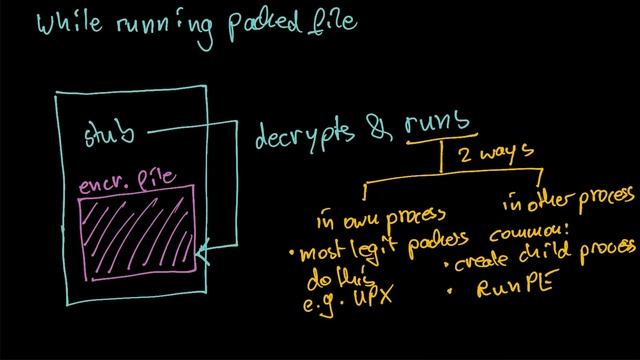 While running packed file
stub
decrypts & runs
encr. file
2 ways
in own process
• most legit packers
do this
e.g. UPX
in other process
common:
• create child process
• RunPE